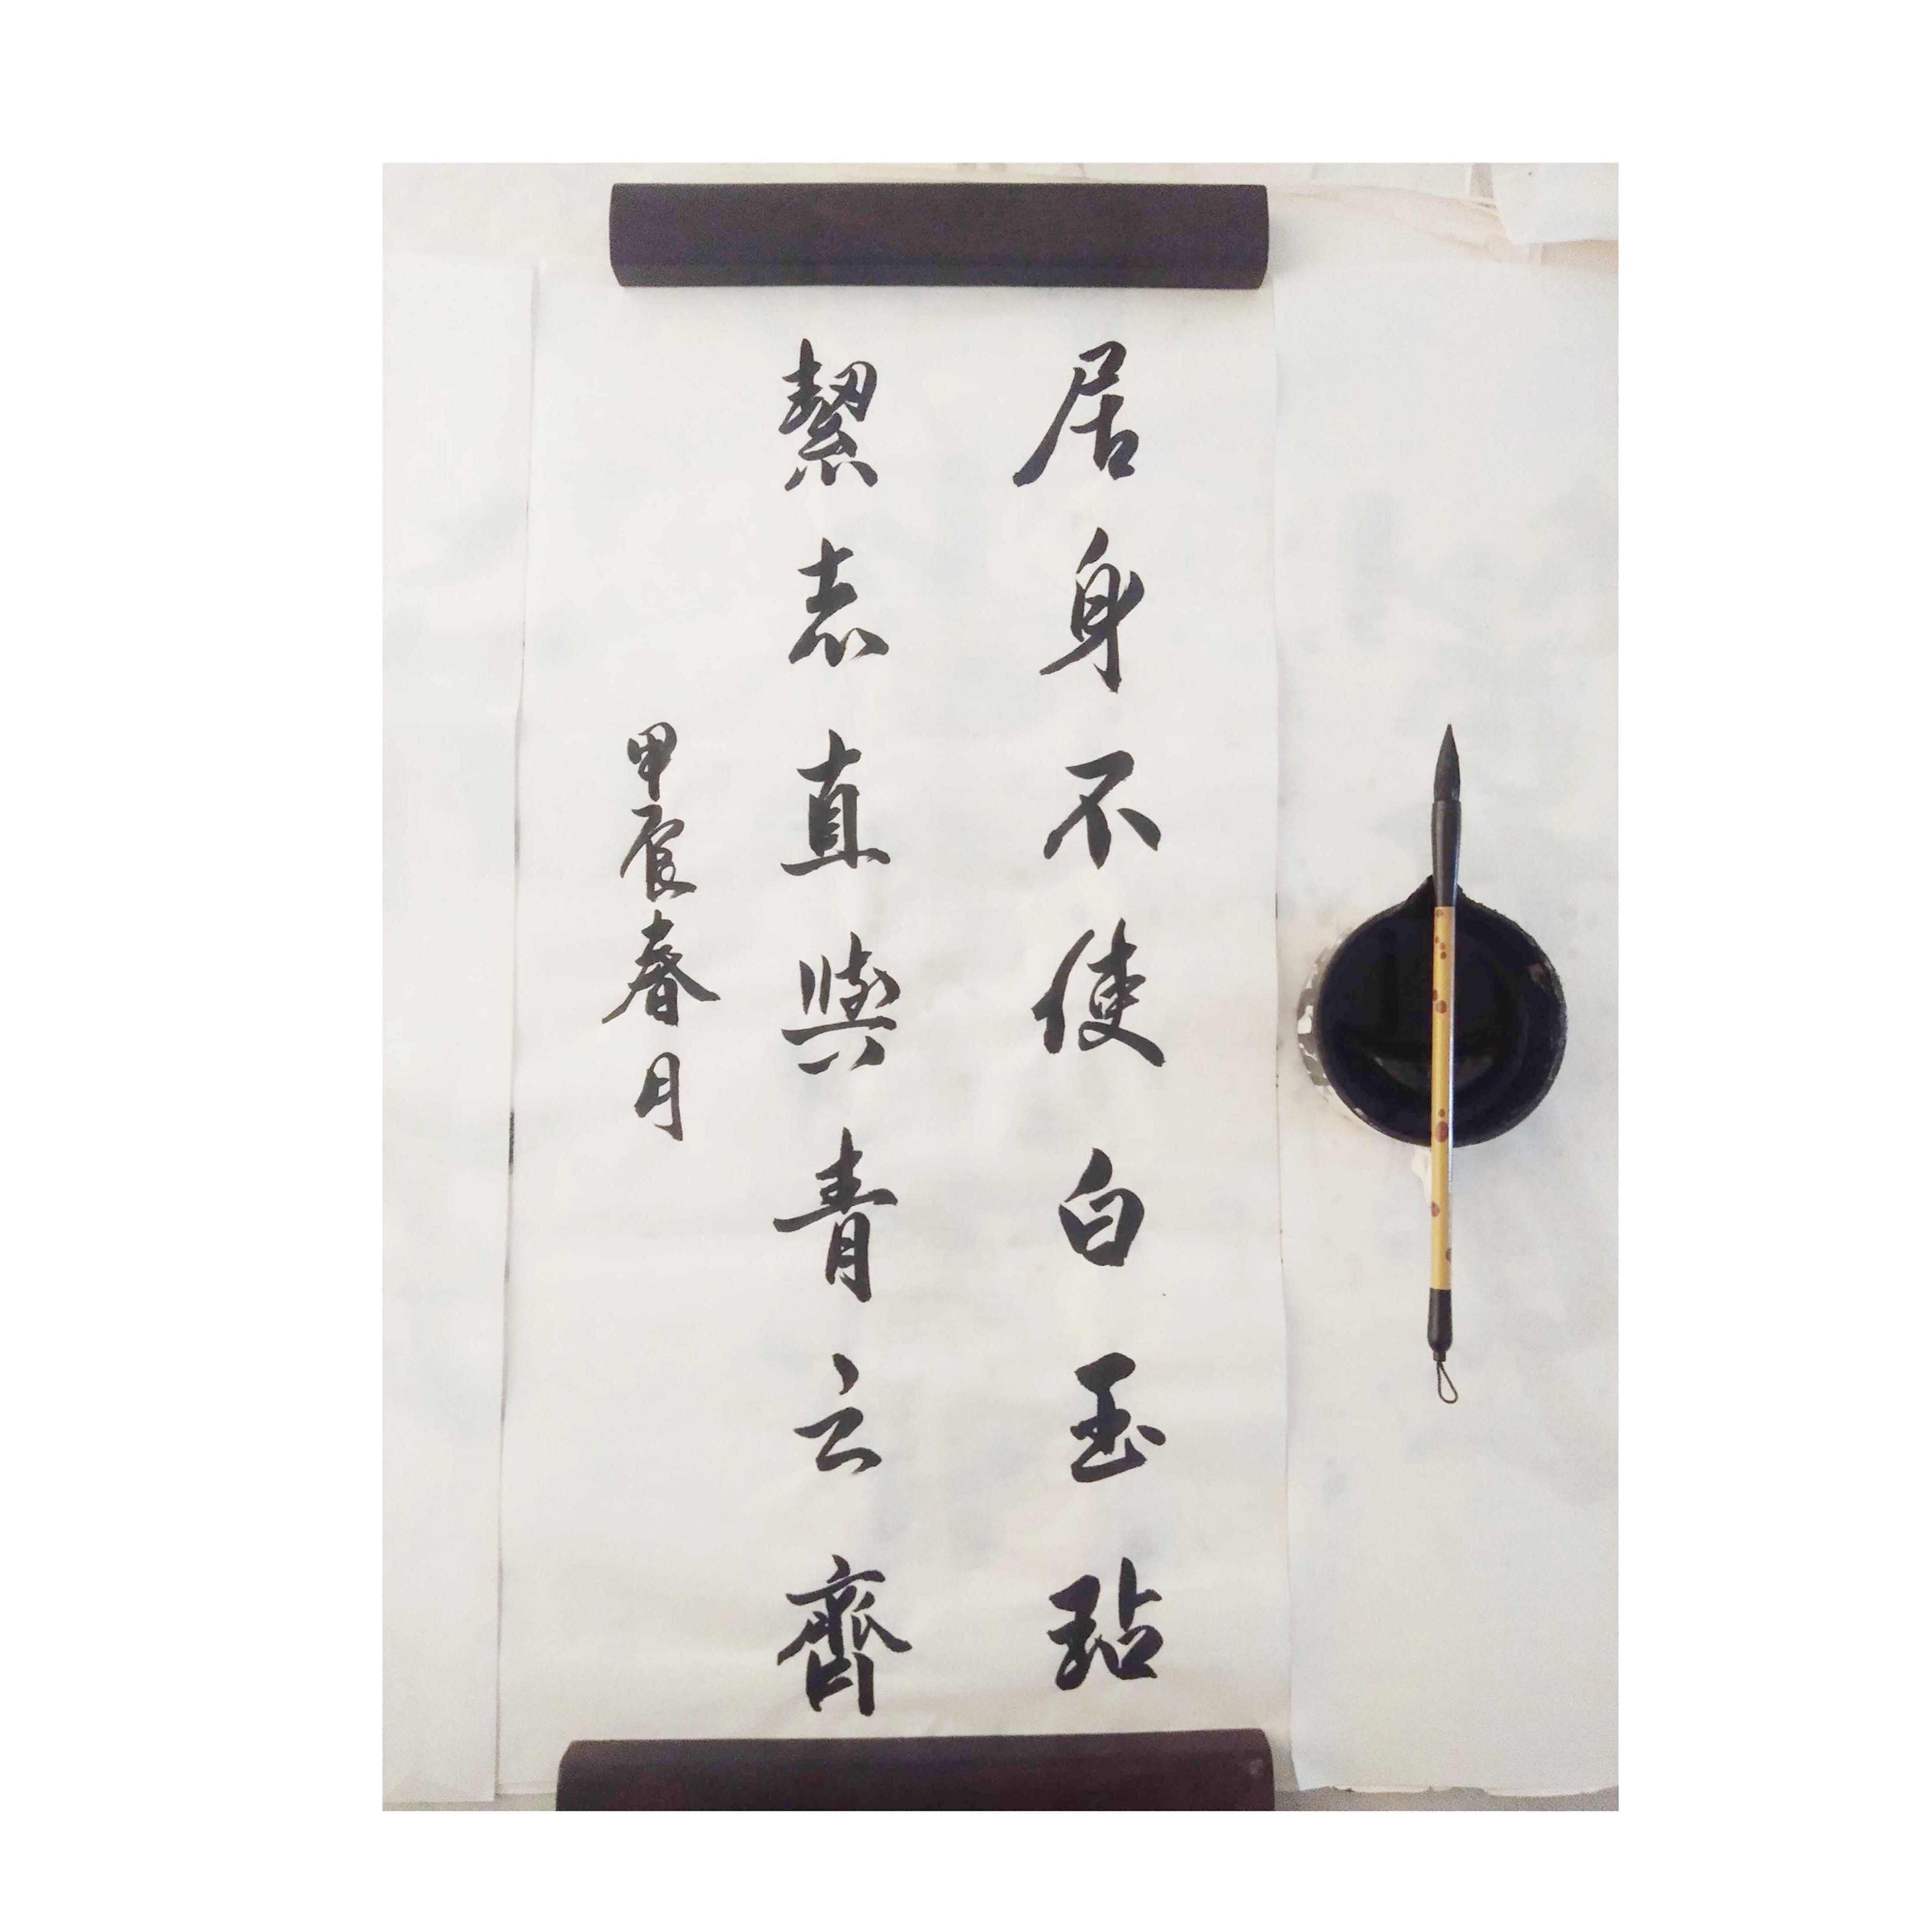 居身不使白玉玷
絜志直與青云齊
甲辰春月